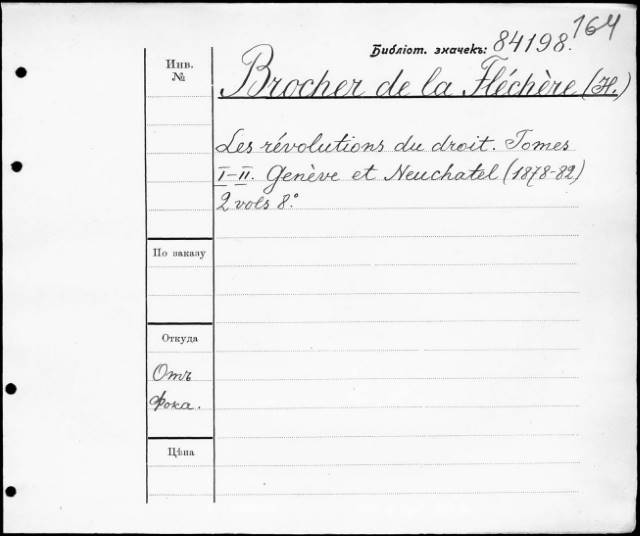 164
Библіот. значекъ: 84198.
Инв.
№
Brocher de la Fléchère (H.)
Les révolutions du droit. Tomes
I-II. Genève et Neuchatel (1878-82)
2 vols 8.°
По заказу
Откуда
Отъ
Фока.
Цѣна